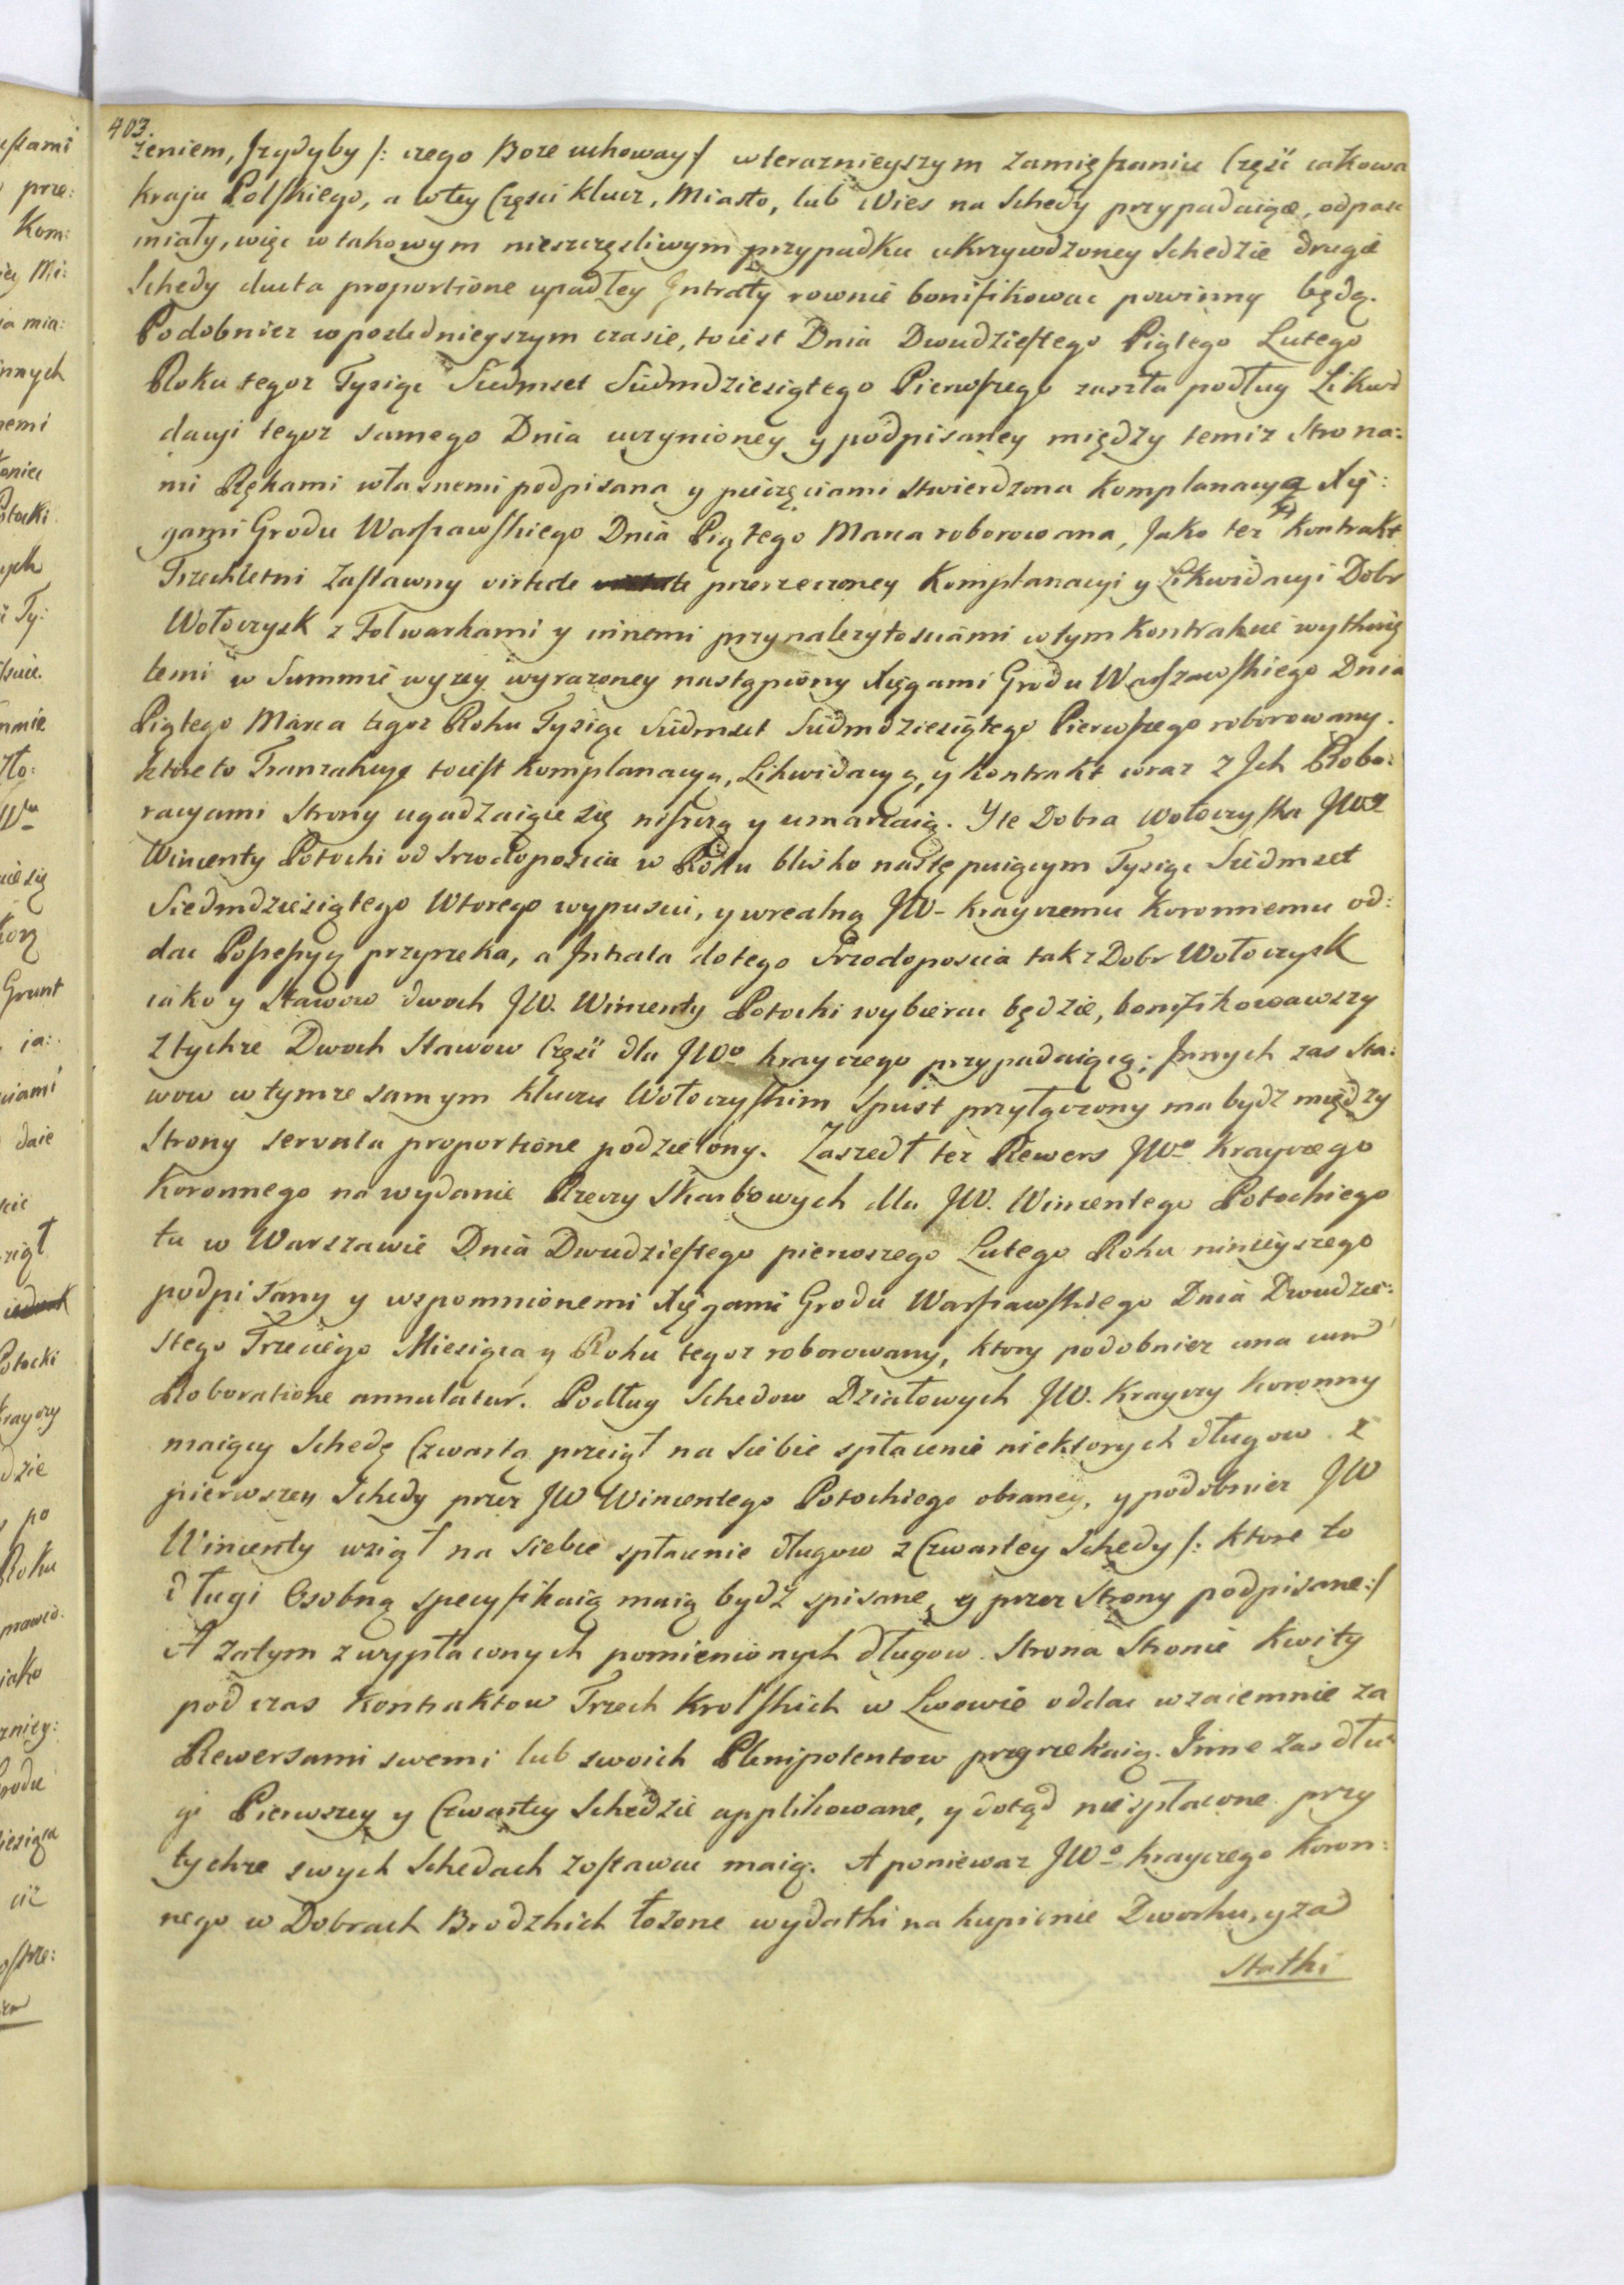 403.
zeniem, Jzgdyby /: czego Boze uchoway:/ w terazniejszym zamięszaniu Część iakowa
kraju Polskiego, a w tey Częsci klucz, Miasto, lub Wies na Schedy przypadaiące, odpasc
miały, więc w takowym nieszczęsliwym przypadku ukrzywdzoney Schedzie drugie
Schedy ducta proportione upadłey Jntraty rownie bonifikowac powinny będą.
Podobniez w poslednieyszym czasie, to iest Dnia Dwudziestego Piątego Lutego
Roku tegoz Tysiąc Siedmset Siedmdziesiątego Pierwszego zaszła podług Likwi
dacyi tegoz samego Dnia uczynioney y podpisaney między temiz Strona:
mi Rękami własnemi podpisana y pieczęciami stwierdzona Komplanacya Xię:
gami Grodu Warszawskiego Dnia Piątego Marca roborowana, Jako tez Kontrakt
Trzechletni Zastawny virtute przerzeczoney Komplanacyi y Likwidacyi Dobr
Wołoczysk z Folwarkami y innemi przynalezytosciami w tym Kontrakcie wytknię
temi w Summie wyzey wyrazoney nastąpiony Xięgami Grodu Warszawskiego Dnia
Piątego Marca tegoz Roku Tysiąc Siedmset Siedmdziesiątego Pierwszego roborowany.
ktore to Tranzakcye to iest Komplanacyą, Likwidacyą, y Kontrakt wraz z Jch Robo:
racyami Strony ugadzaiące się niszczą y umarzaią. Y te Dobra Wołoczyska JWny
Wincenty Potocki od Srzodoposcia w Roku blisko następuiącym Tysiąc Siedmset
Siedmdziesiątego Wtorego wypuscic, y w realną JW- Krayczemu Koronnemu od:
dac Possessyą przyrzeka, a Jntrata do tego Srzodoposcia tak z Dobr Wołoczysk
iako y Stawow dwoch JW. Wincenty Potocki wybierac będzie, bonifikowawszy
z tychze Dwoch Stawow Część dla JWo Krayczego przypadaiącą; Jnnych zas Sta:
wow w tymze samym kluczu Wołoczyskim Spust przyłączony ma bydz między
Strony servata proportione podzielony. Zaszedł tez Rewers JWo Krayczego
Koronnego na wydanie Rzeczy Skarbowych dla JW. Wincentego Potockiego
tu w Warszawie Dnia Dwudziestego pierwszego Lutego Roku ninieyszego
podpisany y wspomnionemi Xięgami Grodu Warszawskiego Dnia Dwudzie:
stego Trzeciego Miesiąca y Roku tegoz roborowany, ktory podobniez una cum
Roboratione annulatur. Podług Schedow Działowych JW. Krayczy Koronny
maiący Schedę Czwartą przeiął na siebie spłacenie niektorych długow z
pierwszey Schedy przez JW Wincentego Potockiego obraney, y podobniez JW
Wincenty wziął na siebie spłacenie długow z Czwartey Schedy /: ktore to
długi Osobną specyfikacią maią bydz spisane, y przez Strony podpisane:/
A zatym z wypłaconych pomienionych długow Strona Stronie Kwity
pod czas Kontraktow Trzech Krolskich w Lwowie oddac wzaiemnie za
Rewersami swemi lub swoich Plenipotentow przyrzekaią. Jnne zas dłu
gi Pierwszey y Czwartey Schedzie applikowane, y dotąd niespłacone przy
tychze swych Schedach zostawac maią. A poniewaz JWo Krayczego Koron:
nego w Dobrach Brodzkich łozone wydatki na kupienie Dworku, y zad
Statki